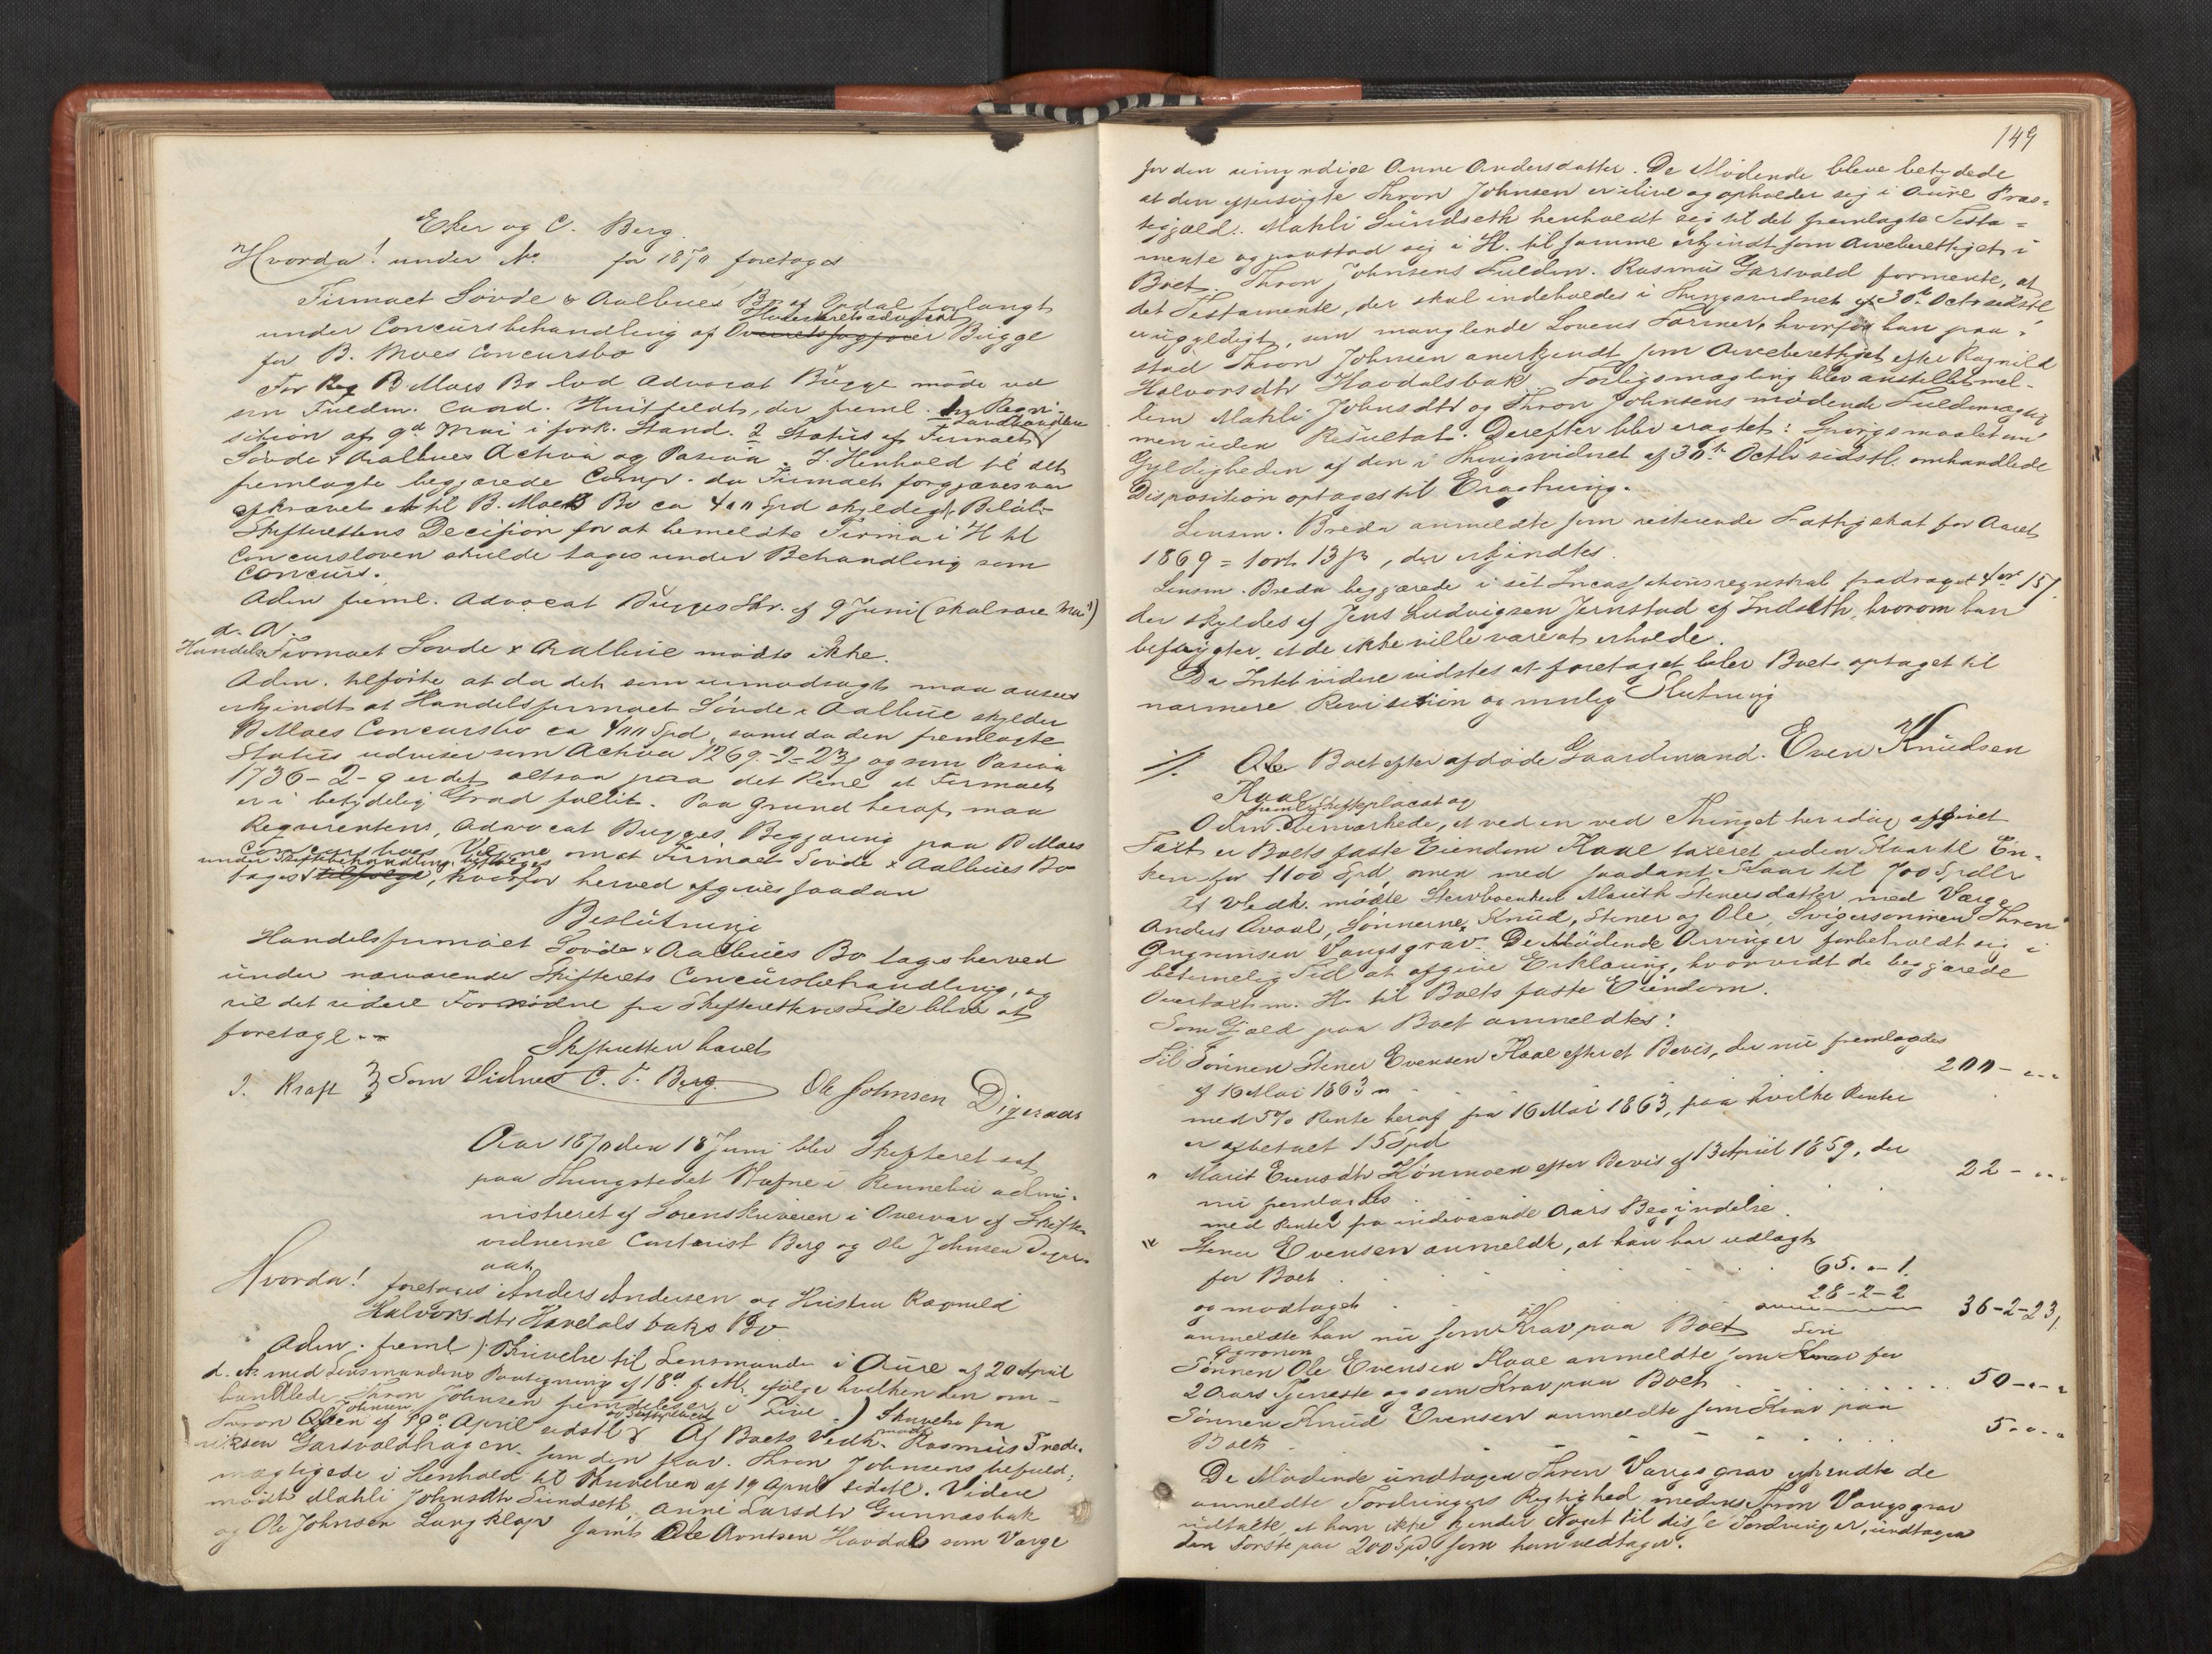 Eker og C. Berg.
Hvorda! under No for 1870 foretoges
Firmaet Sovde & Aalbues Bo af Opdal forlangt
Høiesteretsadvocat
under Concursbehandling af Overretssagfører Bugge
for B. Moes Concursbo
For B. Moes Bo lod Advocat Bugge møde ved
sin Fuldm. Cand. Huitfeldt, der freml. 1 Reqvi-
Landhandler
sition af 9d Mai i fork. Stand. 2 Status af Firmaet
Sovde & Aalbues Activa og Passiva. I Henhold til det
fremlagte begjærede Comp. da Firmaet forgjæves var
afkrævet et til B. Moes Bo ca 400 Spd skyldigt Beløb
Skifterettens Decision for at bemeldte Firma i H. til
Concursloven skulde tages under Behandling som
Concurs.
Adm. freml. Advocat Bugges Skr. af 9 Juni (skal være Mai)
d. A.
Handels Firmaet Sovde & Aalbue mødte ikke.
Adm. tilførte at da det som uimodsagt maa ansees
erkjendt at Handelsfirmaet Sovde & Aalbue skylder
B Moes Concursbo ca 400 Spd, samt da den fremlagte
Status udviser som Activa 1269-2-23 og som Passiva
1736-2-9 er det altsaa paa det Rene at Firmaet
er i betydelig Grad fallit. Paa Grund heraf maa
Reqvirentens, Advocat Bugges Begjæring paa B Moes
Concursboes Vegne om at Firmaet Sovde & Aalbues Bo
under Skiftebehandling bifalges
tages tilfølge, hvorfor herved afgives saadan
Beslutning
Handelsfirmaet Sovde & Aalbues Bo tages herved
under nærværende Skifterets Concursbehandling, og
vil det videre Fornødne fra Skifterettens Side blive at
foretage.
Skifteretten hævet
J. Kraft } Som Vidner C. F. Berg. Ole Johnsen Digeraas
Aar 1870 den 18 Juni blev Skifteret sat
paa Thingstedet Stafne i Rennebu admi-
nistreret af Sorenskriveren i Overvær af Skifte-
vidnerne Contorist Berg og Ole Johnsen Diger-
aas
Hvorda! foretoges Anders Andersen og Hustru Ragnild
Halvorsdtr Havdalsbaks Bo.
Adm. freml. ) Skrivelse til Lensmanden i Aure af 20 April
d. A. med Lensmandens Paategning af 18d f. M. ifølge hvilken den om-
handlede Thron Johnsen fremdeles er i Live.) Skrivelse fra
Johnsen og Skifteplacat
Thron Olsen af 19d April sidstl. Af Boets Vedk. mødte Rasmus Frede-
riksen Garsvoldhagen som den frav. Thron Johnsens befuld-
mægtigede i Henhold til Skrivelsen af 19 April sidstl. Videre
mødte Mahli Johnsdtr Sundseth, Anne Larsdtr Gunnasbak
og Ole Johnsen Langklop samt Ole Arntsen Havdal som Værge
149
for den umyndige Anne Andersdatter. De Mødende bleve betydede
at den eftersøgte Thron Johnsen er ilive og opholder sig i Aure Præs-
tegjæld. Mahli Sundseth henholdt sig til det fremlagte Testa-
mente og paastod sig i H. til samme erkjendt som Arveberettiget i
Boet. Thron Johnsens Fuldm. Rasmus Garsvold formente, at
det Testamente, der skal indeholdes i Thingsvidnet af 30te Octb sidstl
er ugyldigt, som manglende Lovens Former, hvorfor han paa-
stod Thron Johnsen anerkjendt som Arveberettiget efter Ragnild
Halvorsdtr Havdalsbak. Forligsmægling blev anstillet mel-
lem Mahli Johnsdtr og Thron Johnsens mødende Fuldmægtig
men uden Resultat. Derefter blev eragtet: Spørgsmaalet om
Gyldigheden af den i Thingsvidnet af 30te Octb sidstl. omhandlede
Disposition optages til Eragtning.
Lensm. Breda anmeldte som resterende Fattigskat for Aaret
1869 = 1 ort 13 s, der erkjendtes.
Lensm. Breda begjærede i sit Incassationsregnskab fradraget 4 ort 15 s.
der skyldes af Jens Ludvigsen Jernstad af Indseth, hvorom han
befrygter, at de ikke ville være at erholde.
Da Intet videre vidstes at foretages blev Boet optaget til
nærmere Revision og mulig Slutning
Boet efter afdøde Gaardmand. Even Knudsen
Kaal
freml. Skifteplacat og
Adm. bemærkede, at ved en ved Thinget her idag afgivet
Taxt er Boets faste Eiendom Kaal taxeret uden Kaar til En-
ken for 1100 Spd, men med saadant Kaar til 700 Spdlr
Af Vedk. mødte Stervboenken Marith Stenersdatter med Værge
Anders Avaal, Sønnerne Knud, Stener og Ole, Svigersønnen Thron
Gugmunsen Vangsgrav. De Mødende Arvinger forbeholdt sig i
betimelig Tid at afgive Erklæring, hvorvidt de begjærede
Overtaxt m. H. til Boets faste Eiendom.
Som Gjæld paa Boet anmeldtes:
Til Sønnen Stener Evensen Kaal efter et Bevis, der nu fremlagdes
af 16 Mai 1863 200 - „ - „
med 5% Rente heraf fra 16 Mai 1863, paa hvilke Renter
er afbetalt 15 Spd
„ Marit Evensdtr Hönmoen efter Bevis af 13 April 1859, der
nu fremlagdes 22 - „ - „
med Renter fra indeværende Aars Begyndelse.
„ Stener Evensen anmeldte, at han har udlagt
for Boet 65. „ - 1.
og modtaget 28-2-2
anmeldte han nu som Krav paa Boet 36-2-23.
Sønnen Ole Evensen Kaal anmeldte som Krav for
2 Aars Tjeneste og som Krav paa Boet 50 - „ - „
Sønnen Knud Evensen anmeldte som Krav paa
Boet 5 - „ - „
De Mødende undtagen Thron Vangsgrav erkjendte de
anmeldte Fordringers Rigtighed, medens Thron Vangsgrav
udtalte, at han ikke kjender Noget til disse Fordringer, undtagen
den første paa 200 Spd, som han vedtager.